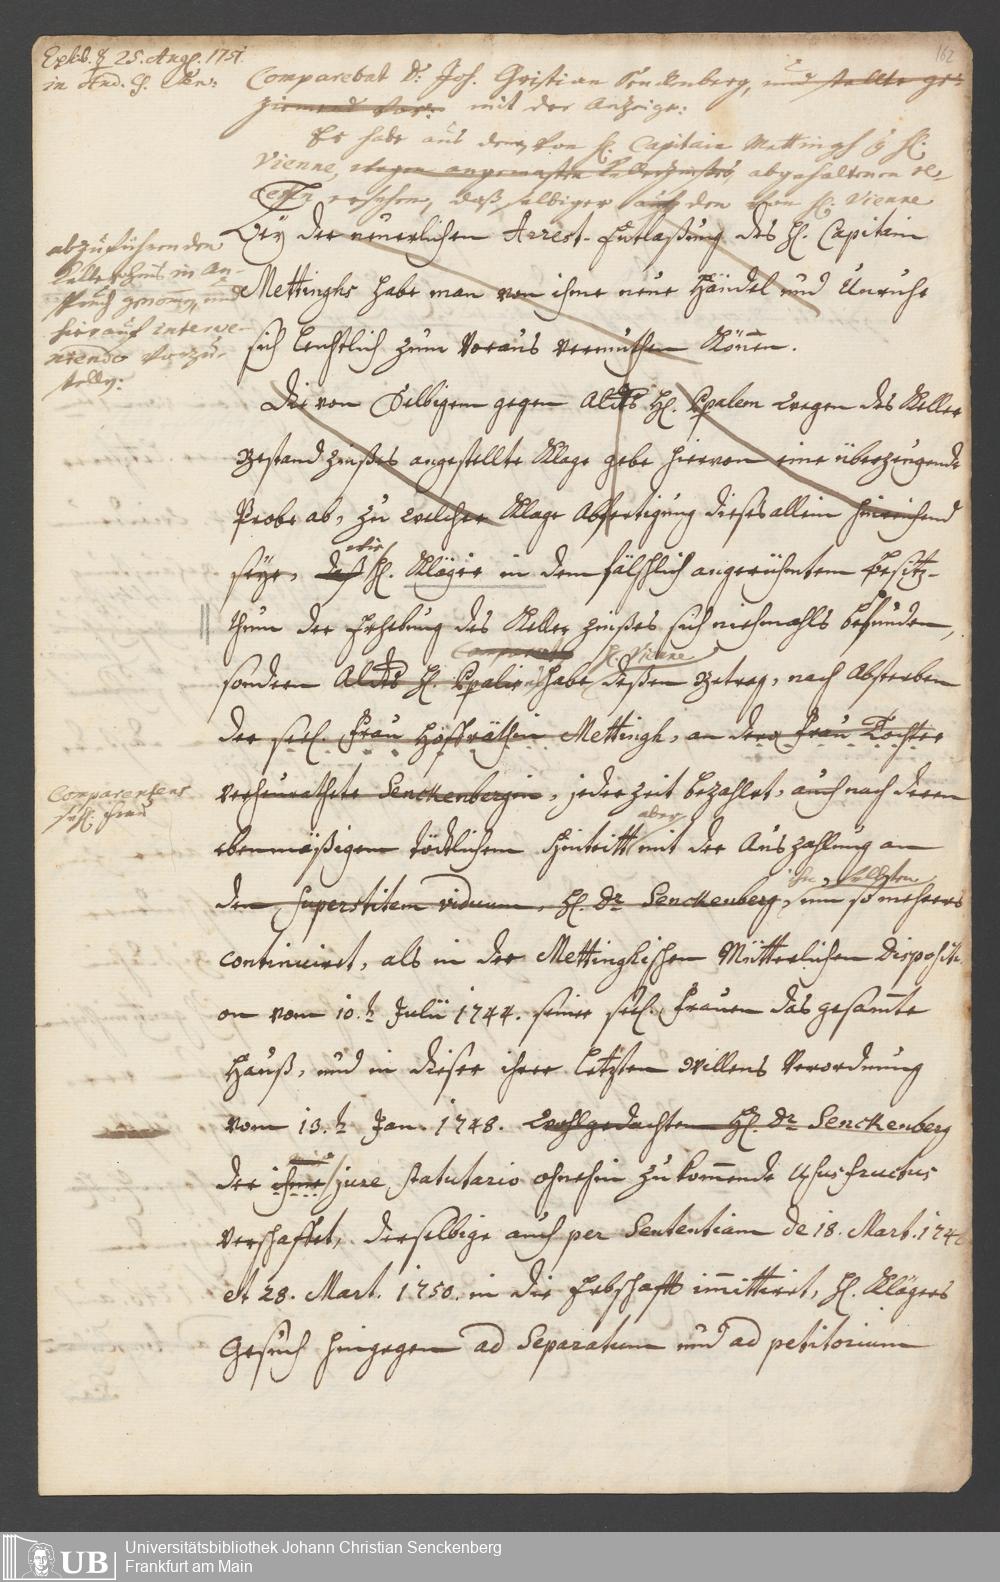 Exhib. d. 25. Aug. 1751.
162
Comparebat Dr. Joh. Christian Senckenberg, und stellte ge-
ziemend vor: mit der Anzeige:
Er habe aus dem, von H. Capitain Mettingh &
Vienne, wegen angemasten Kellerzinses, abgehaltenen
ersehen, daß selbiger auf den von H. Vienne
abzuführenden
Kellerzins in An-
spruch genommen, und
hierauf interve-
niendo vorzu-
stellen:
Bey der neuerlichen Arrest-Entlaßung des H. Capitain
Mettinghs habe man von ihme neue Händel und Unruhe
sich leichtlich zum Voraus vermuthen können.
Die von Selbigem gegen H. wegen des Keller
Bestand Zinßes angestellte Klage gebe hiervon eine überzeugende
Probe ab, zu welcher Klage Abfertigung dieses allein hinreichend
seye, daß wie H. Kläger in dem fälschlich angerühmtem Besitz-
thum der Erhebung des Keller Zinßes sich niehmahls befunden,
H. Vienne
sondern H. habe deßen Betrag, nach Absterben
der seel. Frau Hoffräthin Mettingh, an dero Frau Tochter
Comparentens
seel. Frau
verheurathete Senckenbergin, jederzeit bezahlet, auch nach deren
aber
ebenmäßigem tödtlichem Hintritt mit der Auszahlung an
ihn, selbsten
den superstitem viduum, H. Dr. Senckenberg, um so mehrers
continuiret, als in der Mettinghischen Mütterlichen Dispositi-
on vom 10.t Julii 1744. seiner seel. Frauen das gesamte
Hauß, und in dieser ihrer letzten Willens Verordnung
vom 13.t Jan. 1748. wohlgedachtem H. Dr. Senckenberg
der ihme jure statutario ohnehin zukommende Ususfructus
verschaffet, derselbige auch per Sententiam de 18. Mart. 174
et 28. Mart. 1750. in die Erbschafft immittiret, H. Klägers
Gesuch hingegen ad Separatum und ad petitorium
UB
Universitätsbibliothek Johann Christian Senckenberg
Frankfurt am Main